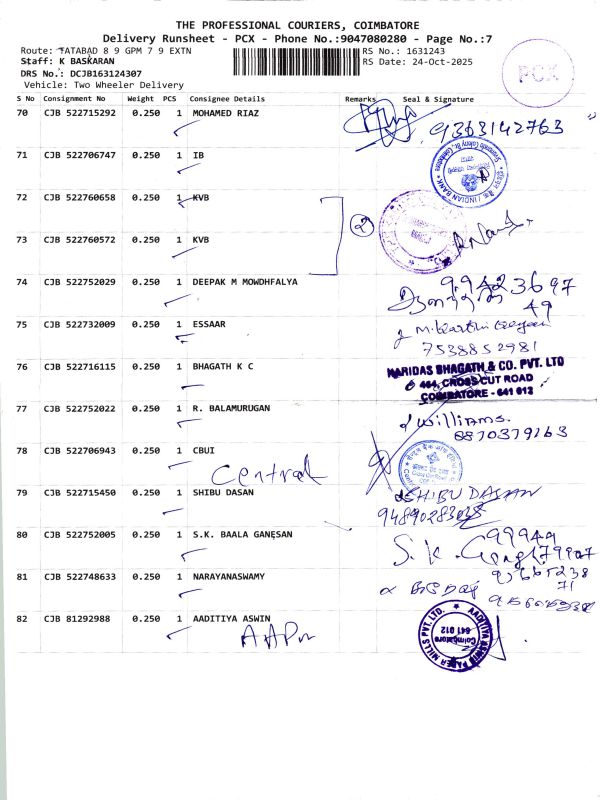 THE PROFESSIONAL COURIERS, COIMBATORE
Delivery Runsheet - PCX - Phone No.:9047080280 - Page No.:7
Route: TATABAD 8 9 GPM 7 9 EXTN
RS No.: 1631243
Staff: K BASKARAN
RS Date: 24-Oct-2025
DRS No.: DCJB163124307
Vehicle: Two Wheeler Delivery
PCX
S No Consignment No Weight PCS Consignee Details Remarks Seal & Signature
70 CJB 522715292 0.250 1 MOHAMED RIAZ 9363142763
71 CJB 522706747 0.250 1 IB
INDIAN BANK
72 CJB 522760658 0.250 1 KVB
2
73 CJB 522760572 0.250 1 KVB
74 CJB 522752029 0.250 1 DEEPAK M MOWDHFALYA
9942369749
75 CJB 522732009 0.250 1 ESSAAR
7538852981
76 CJB 522716115 0.250 1 BHAGATH K C
HARIDAS BHAGATH & CO. PVT. LTD
464, CROSS CUT ROAD
COIMBATORE - 641 012
77 CJB 522752022 0.250 1 R. BALAMURUGAN
Williams.
8870379163
78 CJB 522706943 0.250 1 CBUI
Central
79 CJB 522715450 0.250 1 SHIBU DASAN
SHIBU DASAN
80 CJB 522752005 0.250 1 S.K. BAALA GANESAN
S.K.
81 CJB 522748633 0.250 1 NARAYANASWAMY
82 CJB 81292988 0.250 1 AADITIYA ASWIN
AADITIYA ASWIN PAPER MILLS PVT. LTD.
Coimbatore
641 012